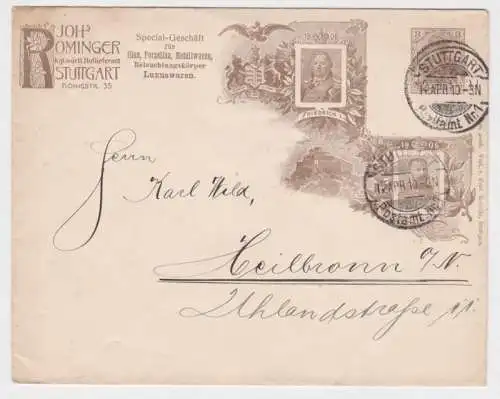 JOHS
ROMINGER
kgl.württ.Hoflieferant
STUTTGART
KÖNIGSTR. 35
Special-Geschäft
für
Glas, Porzellan, Metallwaren,
Beleuchtungskörper
Luxuswaren.
1906
FRIEDRICH I.
3 3
STUTTGART
12 APR 10 3-N
Postamt Nr. 1
1906
STU
12 APR 10 3-N
Postamt Nr. 1
Herrn
Karl Wild,
Heilbronn a/N.
Uhlandstraße